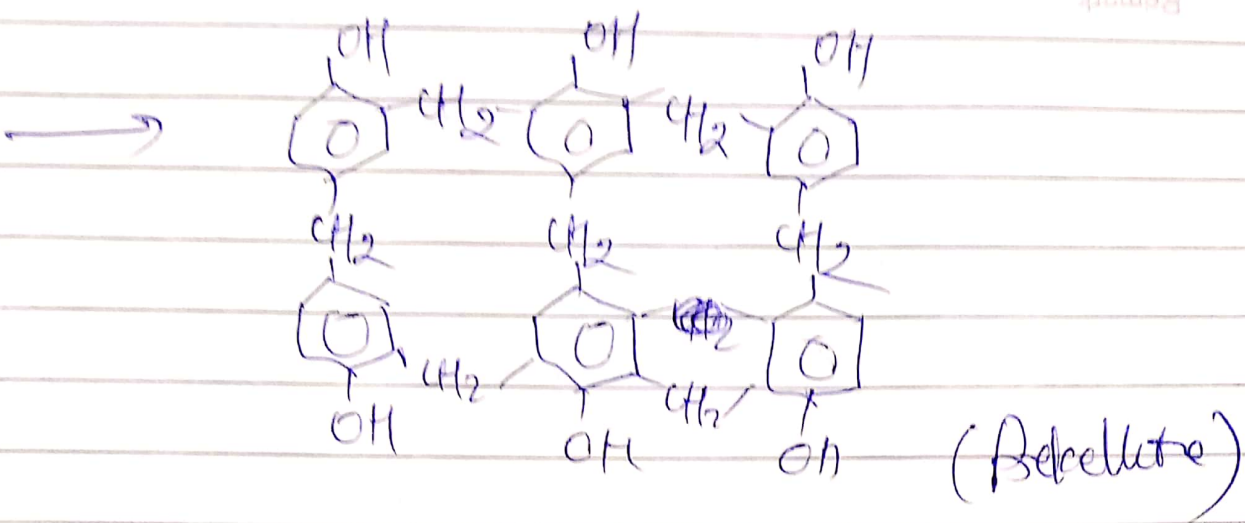 OH OH OH
CH2 CH2
CH2 CH2 CH2
CH2 CH2
OH OH OH
(Bekellite)